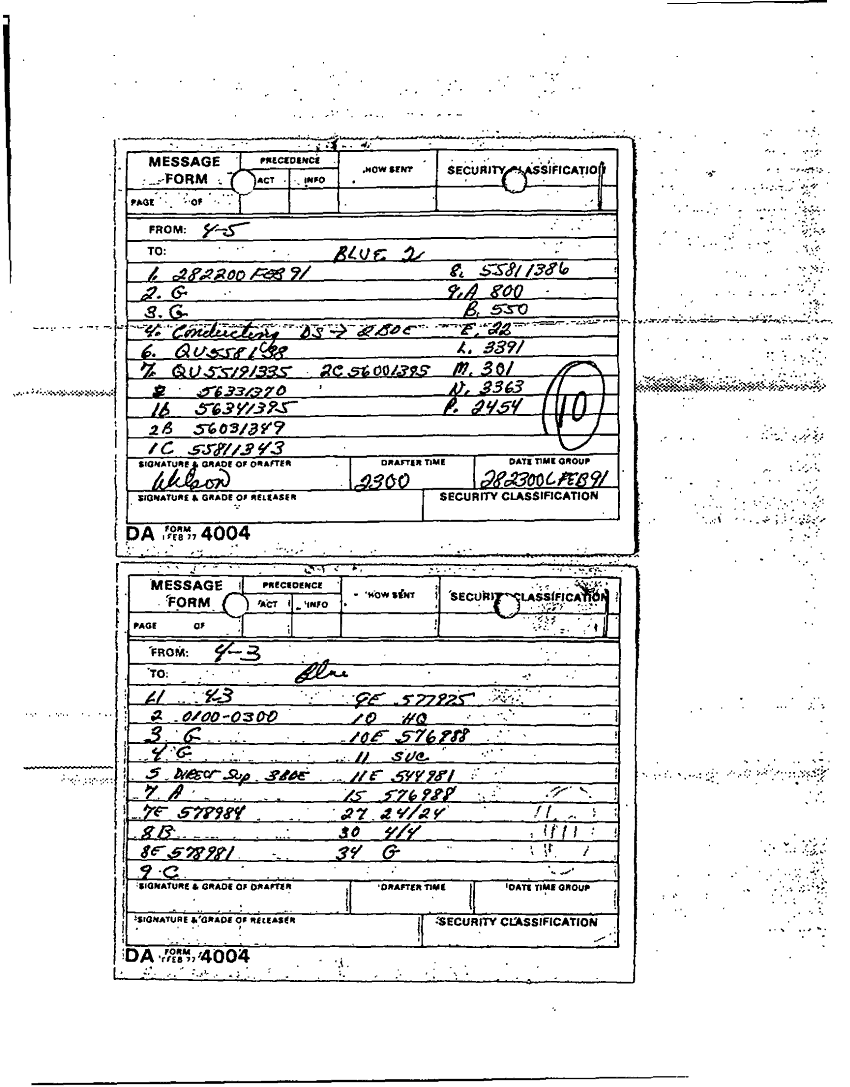 MESSAGE FORM PRECEDENCE HOW SENT SECURITY CLASSIFICATION
ACT INFO
PAGE OF
FROM: 4-5
TO: BLUE 2
1. 282200 FEB 91 8. 55811386
2. G 9.A 800
3. G B. 550
4. Conducting DS → 2 BDE E. 22
6. QU5581 L. 3391
7. QU55191335 2C 56001395 M. 301
56331370 N. 3363
1B 56341395 P. 2454
10
2B 56031349
1C 55811343
SIGNATURE & GRADE OF DRAFTER DRAFTER TIME DATE TIME GROUP
Wilson 2300 282300L FEB91
SIGNATURE & GRADE OF RELEASER SECURITY CLASSIFICATION
DA FORM 1 FEB 77 4004
MESSAGE FORM PRECEDENCE HOW SENT SECURITY CLASSIFICATION
ACT INFO
PAGE OF
FROM: 4-3
TO: Blue
L1 43 9E 577975
2 0100-0300 10 HQ
3 G 10E 576988
4 G 11 SVC
5 DIRECT Sup 3BDE 11E 544981
7 A 15 576988
7E 578984 27 24/24
11
8B 30 4/4
8E 578981 34 G
9 C
SIGNATURE & GRADE OF DRAFTER DRAFTER TIME DATE TIME GROUP
SIGNATURE & GRADE OF RELEASER SECURITY CLASSIFICATION
DA FORM 1 FEB 77 4004